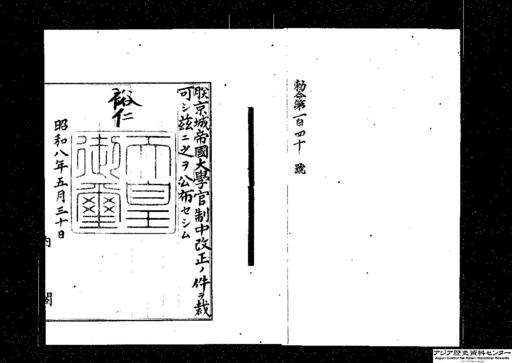 勅令第一百四十號
朕京城帝國大學官制中改正ノ件ヲ裁
可シ茲ニ之ヲ公布セシム
裕仁
天皇御璽
昭和八年五月三十日
内閣
アジア歴史資料センター
Japan Center for Asian Historical Records